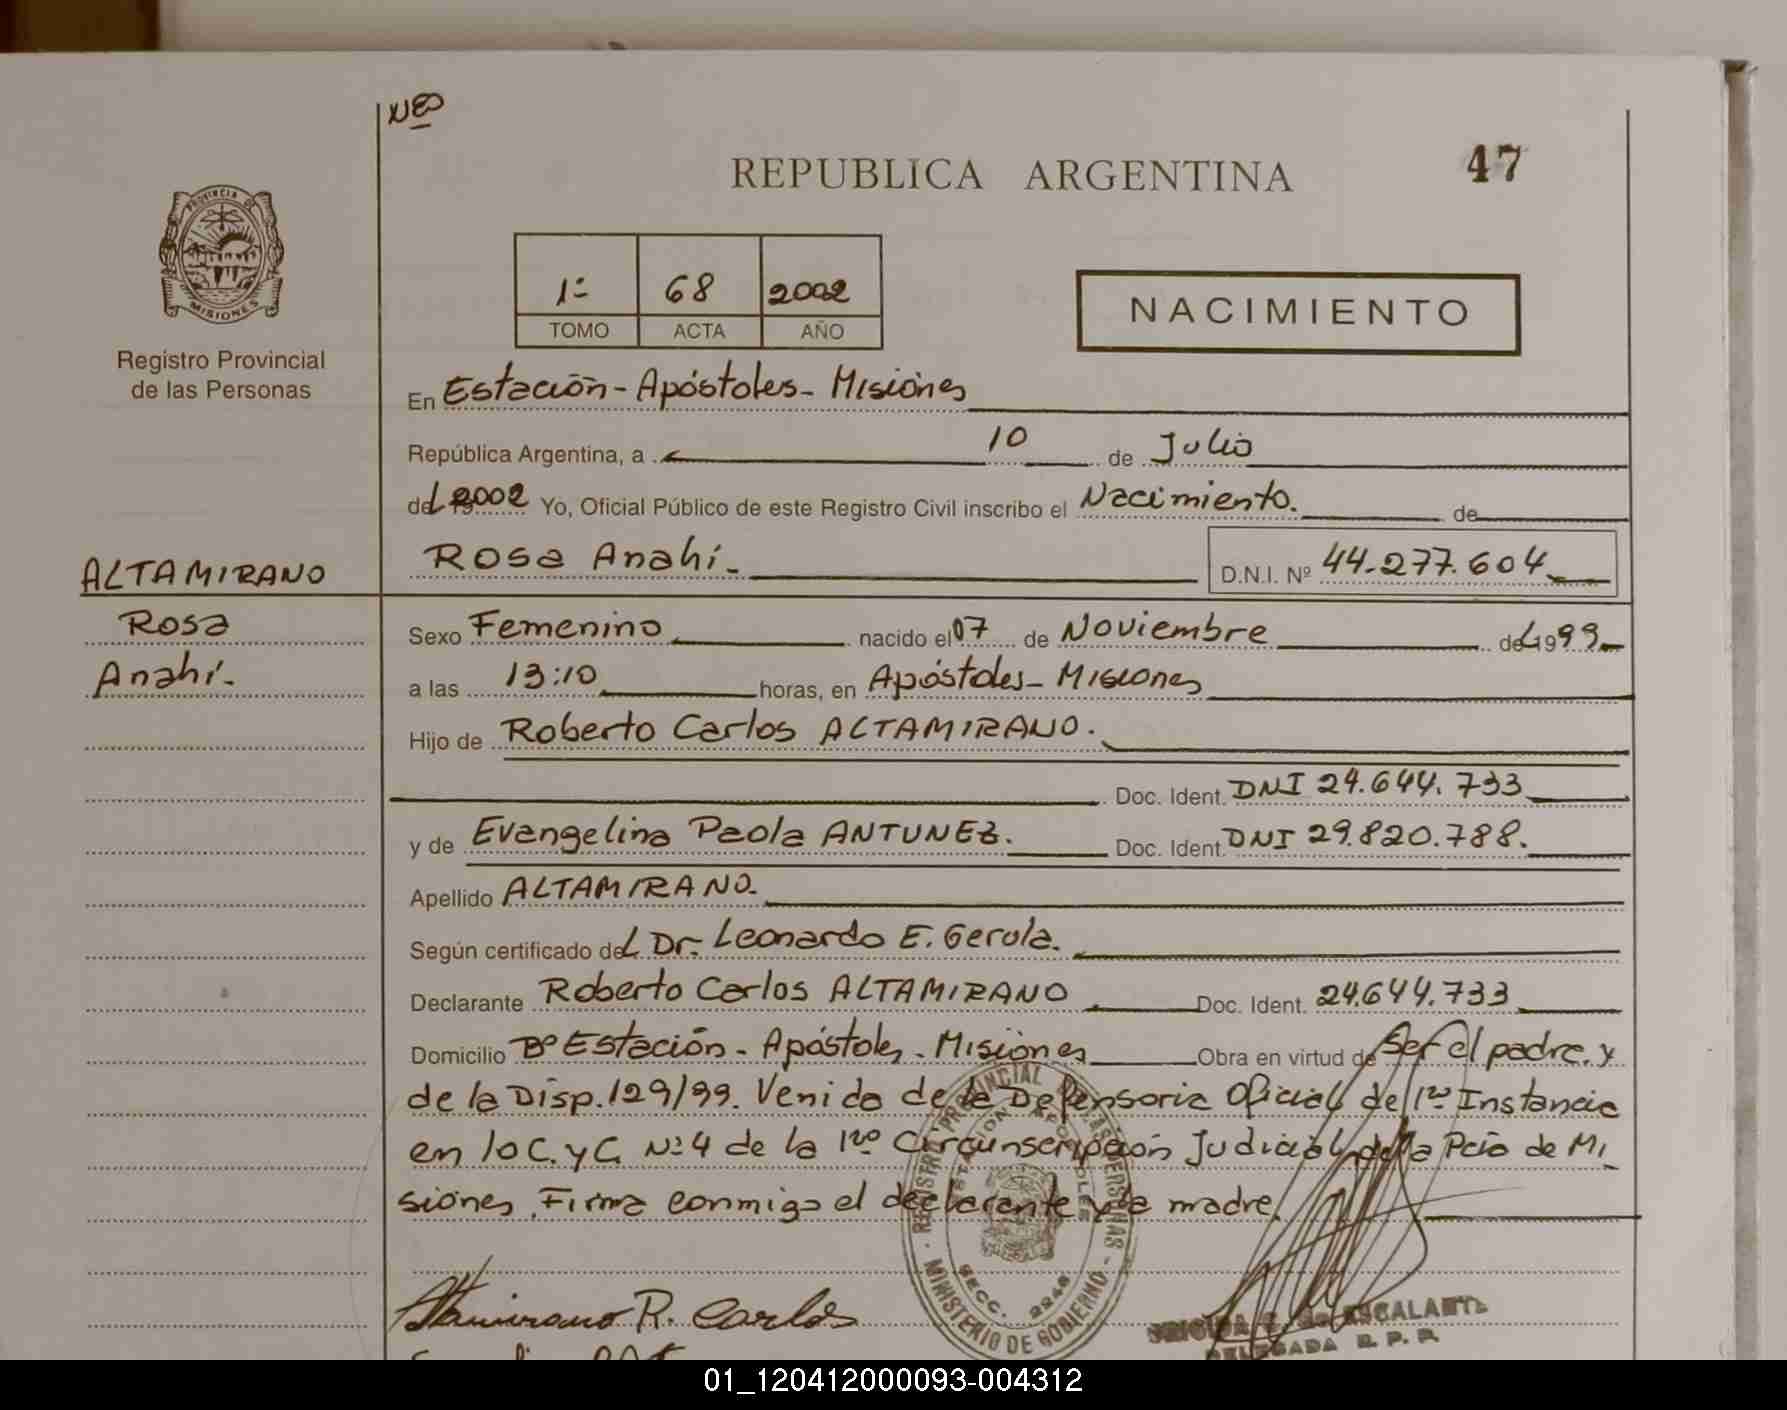 NEO
47
REPUBLICA ARGENTINA
PROVINCIA DE
MISIONES
Registro Provincial
de las Personas
1º 68 2002
TOMO ACTA AÑO
NACIMIENTO
En Estación - Apóstoles - Misiones
República Argentina, a 10 de Julio
del 2002 Yo, Oficial Público de este Registro Civil inscribo el Nacimiento. de
ALTAMIRANO
Rosa
Anahí.-
Rosa Anahí.- D.N.I. Nº 44.277.604
Sexo Femenino nacido el 07 de Noviembre del 1999
a las 13:10 horas, en Apóstoles - Misiones
Hijo de Roberto Carlos ALTAMIRANO.
Doc. Ident. DNI 24.644.733
y de Evangelina Paola ANTUNEZ. Doc. Ident. DNI 29.820.788.
Apellido ALTAMIRANO.
Según certificado del Dr. Leonardo E. Gerula.
Declarante Roberto Carlos ALTAMIRANO Doc. Ident. 24.644.733
Domicilio Bº Estación - Apóstoles - Misiones Obra en virtud de Ser el padre. y
de la Disp. 129/99. Venida de la Defensoria Oficial de 1ra Instancia
en lo C. y C. Nº 4 de la 1ra Circunscripción Judicial de la Pcia de Mi
siones. Firma conmigo el declarante y la madre.
REGISTRO PROVINCIAL DE LAS PERSONAS
ESTACION APOSTOLES
SECC. 2246
MINISTERIO DE GOBIERNO
Altamirano R. Carlos
ESCALANTE
DELEGADA R. P. P.
01_120412000093-004312